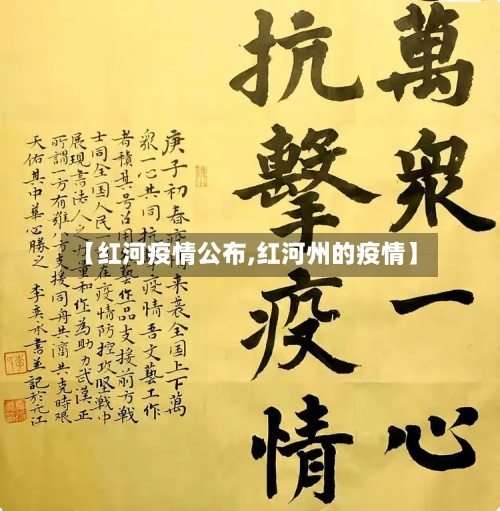 萬衆一心
抗擊疫情
庚子初春情来襲全国上下萬
衆一心共同抗疫情吾文藝工作
者積其号召用藝作品支援前方戰
士同全国人民在疫情防控攻堅戰中
展現書法人之力量和作為助力武漢正
所謂一方有难八方支援同舟共濟共克時艰
天佑其中華必勝之 李英書並記於元江
【红河疫情公布,红河州的疫情】